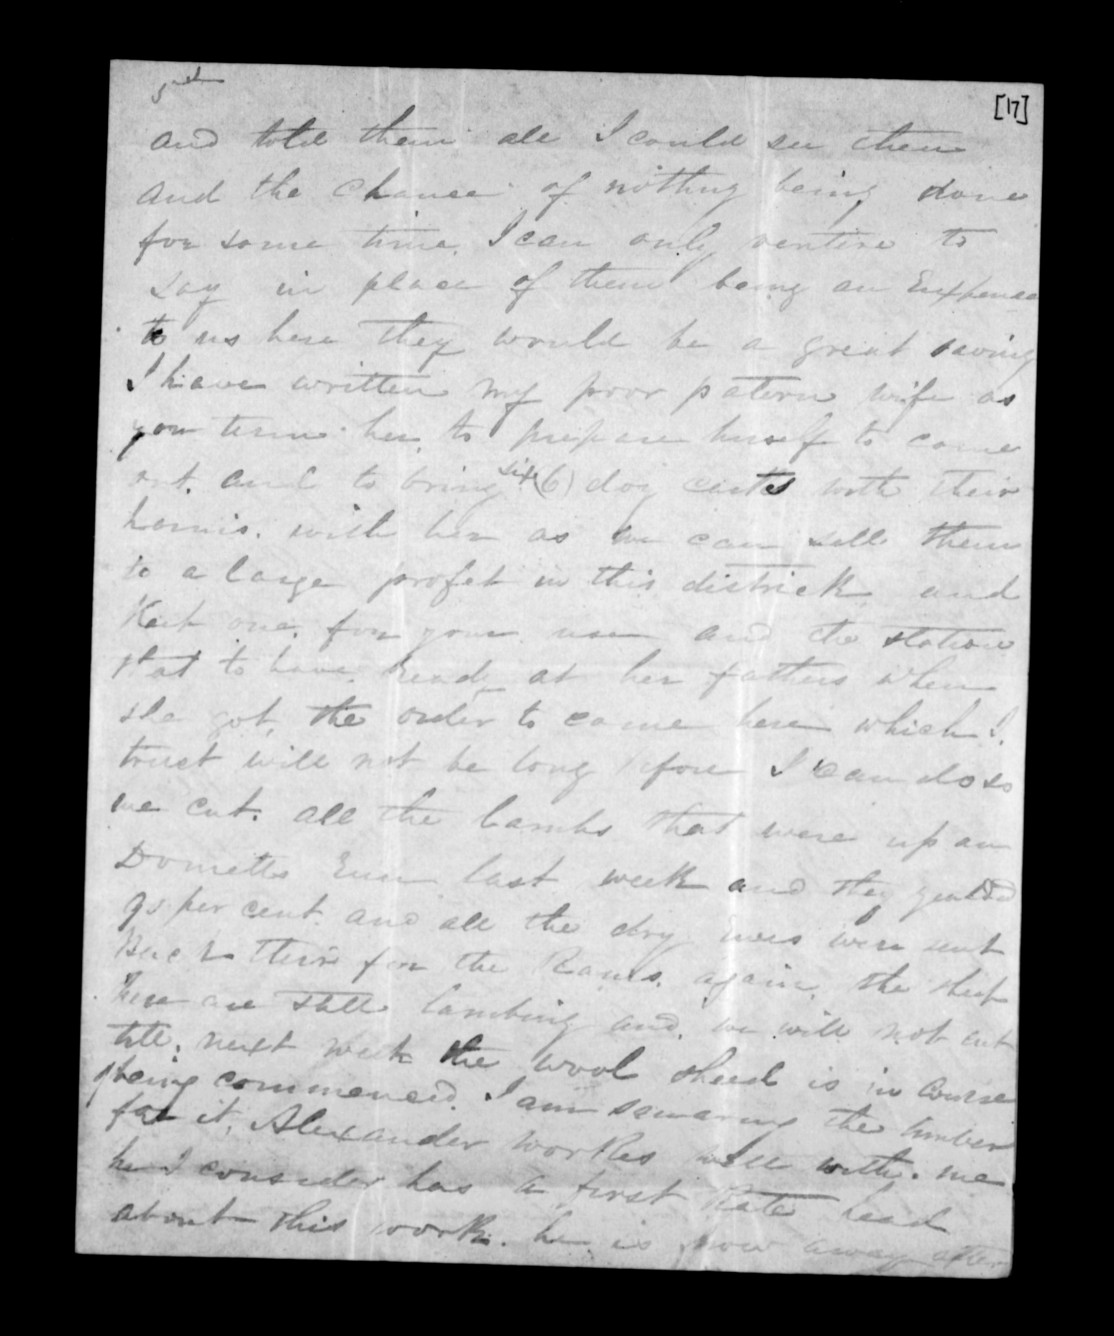 [17]
and told them all I could see them
and the Chance of nothing being done
for some time. I can only venture to
say in place of them being an Expence
to us here they would be a great saving
I have written my poor patern wife as
you term her. to prepare herself to come
out. and to bring six (6) dog carts with their
harnis. with her as we can sell them
to a large profit in this districk and
Keet one. for your use and the station
that to have ready at her fathers when
she got, the order to come here which I.
trust will not be long before I can do so
we cut. all the lambs that were up an
Dometts Run last week and they
95 per cent. and all the dry were sent
Back their for the Rams. again. the sheep
here are still lambing and. we will not cut
till. next week the wool shead is in Course
being commenced. I am squaring the timber
for it, Alexander workes well with. me
he I consider has a first Rate head
about this work. he is now away after